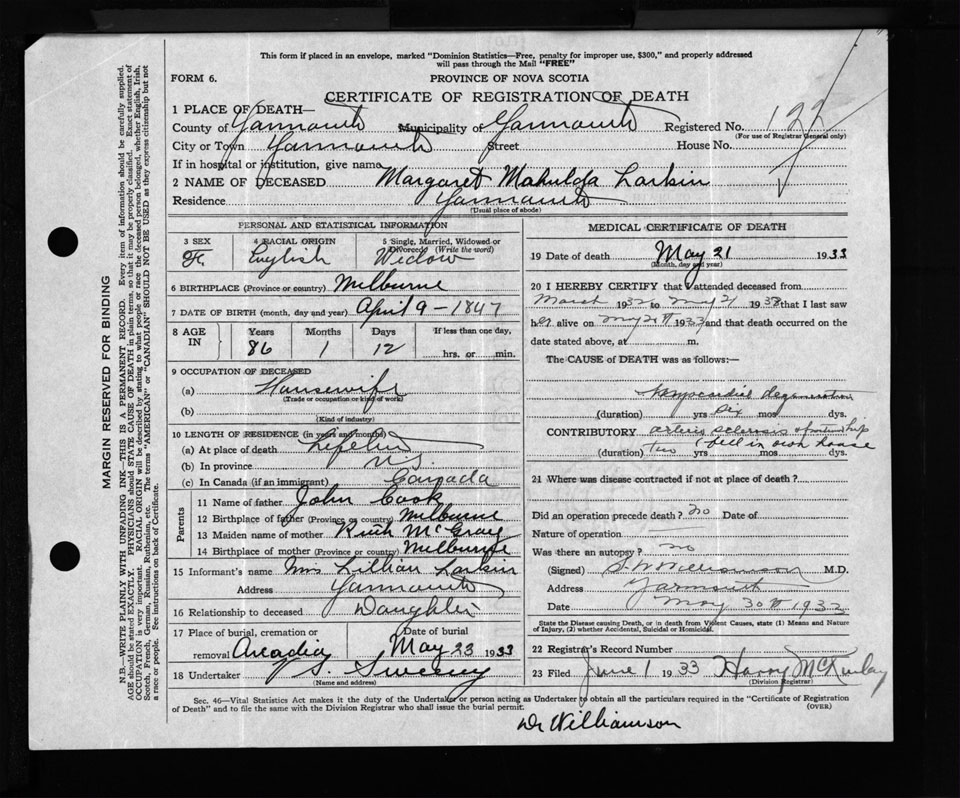 This form if placed in an envelope, marked "Dominion Statistics—Free, penalty for improper use, $300," and properly addressed
will pass through the Mail "FREE"
FORM 6.
PROVINCE OF NOVA SCOTIA
CERTIFICATE OF REGISTRATION OF DEATH
1 PLACE OF DEATH—
County of Yarmouth Municipality of Yarmouth Registered No. 122
(For use of Registrar General only)
City or Town Yarmouth Street House No.
If in hospital or institution, give name
2 NAME OF DECEASED Margaret Mahulda Larkin
Residence Yarmouth
(Usual place of abode)
PERSONAL AND STATISTICAL INFORMATION
3 SEX 4 RACIAL ORIGIN 5 Single, Married, Widowed or
Divorced (Write the word)
F. English Widow
6 BIRTHPLACE (Province or country) Milburne
7 DATE OF BIRTH (month, day and year) April 9 - 1847
8 AGE IN Years Months Days If less than one day,
86 1 12 hrs. or min.
9 OCCUPATION OF DECEASED
(a) Housewife
(Trade or occupation or kind of work)
(b)
(Kind of industry)
10 LENGTH OF RESIDENCE (in years and months)
(a) At place of death
(b) In province N.S.
(c) In Canada (if an immigrant) Canada
Parents
11 Name of father John Cook
12 Birthplace of father (Province or country) Milburne
13 Maiden name of mother Ruth McGray
14 Birthplace of mother (Province or country) Milburne
15 Informant's name Mrs Lillian Larkin
Address Yarmouth
16 Relationship to deceased Daughter
17 Place of burial, cremation or Date of burial
removal Arcadia May 23 1933
18 Undertaker V. S. Sweeny
(Name and address)
MEDICAL CERTIFICATE OF DEATH
19 Date of death May 21 1933
(Month, day and year)
20 I HEREBY CERTIFY that I attended deceased from
March 1932 to May 21 1933 that I last saw
her alive on May 21 1933 and that death occurred on the
date stated above, at m.
The CAUSE of DEATH was as follows:—
Myocardial degeneration
(duration) yrs six mos. dys.
CONTRIBUTORY arterio sclerosis & fractured hip
(fell in own house
(duration) Two yrs mos dys.
21 Where was disease contracted if not at place of death?
Did an operation precede death? no Date of
Nature of operation
Was there an autopsy? no
(Signed) S. W. Williamson M.D.
Address Yarmouth
Date May 30th 1933
State the Disease causing Death, or in death from Violent Causes, state (1) Means and Nature
of Injury, (2) whether Accidental, Suicidal or Homicidal.
22 Registrar's Record Number
23 Filed June 1 1933 Harry McKinlay
(Division Registrar)
Sec. 46—Vital Statistics Act makes it the duty of the Undertaker or person acting as Undertaker to obtain all the particulars required in the "Certificate of Registration
of Death" and to file the same with the Division Registrar who shall issue the burial permit.
(OVER)
Dr Williamson
MARGIN RESERVED FOR BINDING
N.B.—WRITE PLAINLY WITH UNFADING INK—THIS IS A PERMANENT RECORD. Every item of information should be carefully supplied.
AGE should be stated EXACTLY. PHYSICIANS should STATE CAUSE OF DEATH in plain terms, so that it may be properly classified. Exact statement of
OCCUPATION is very important. RACIAL ORIGIN will be described by stating to what people or race the deceased person belonged, whether English, Irish,
Scotch, French, German, Russian, Ruthenian, etc. The terms "AMERICAN" or "CANADIAN" SHOULD NOT BE USED as they express citizenship but not
a race or people. See instructions on back of Certificate.